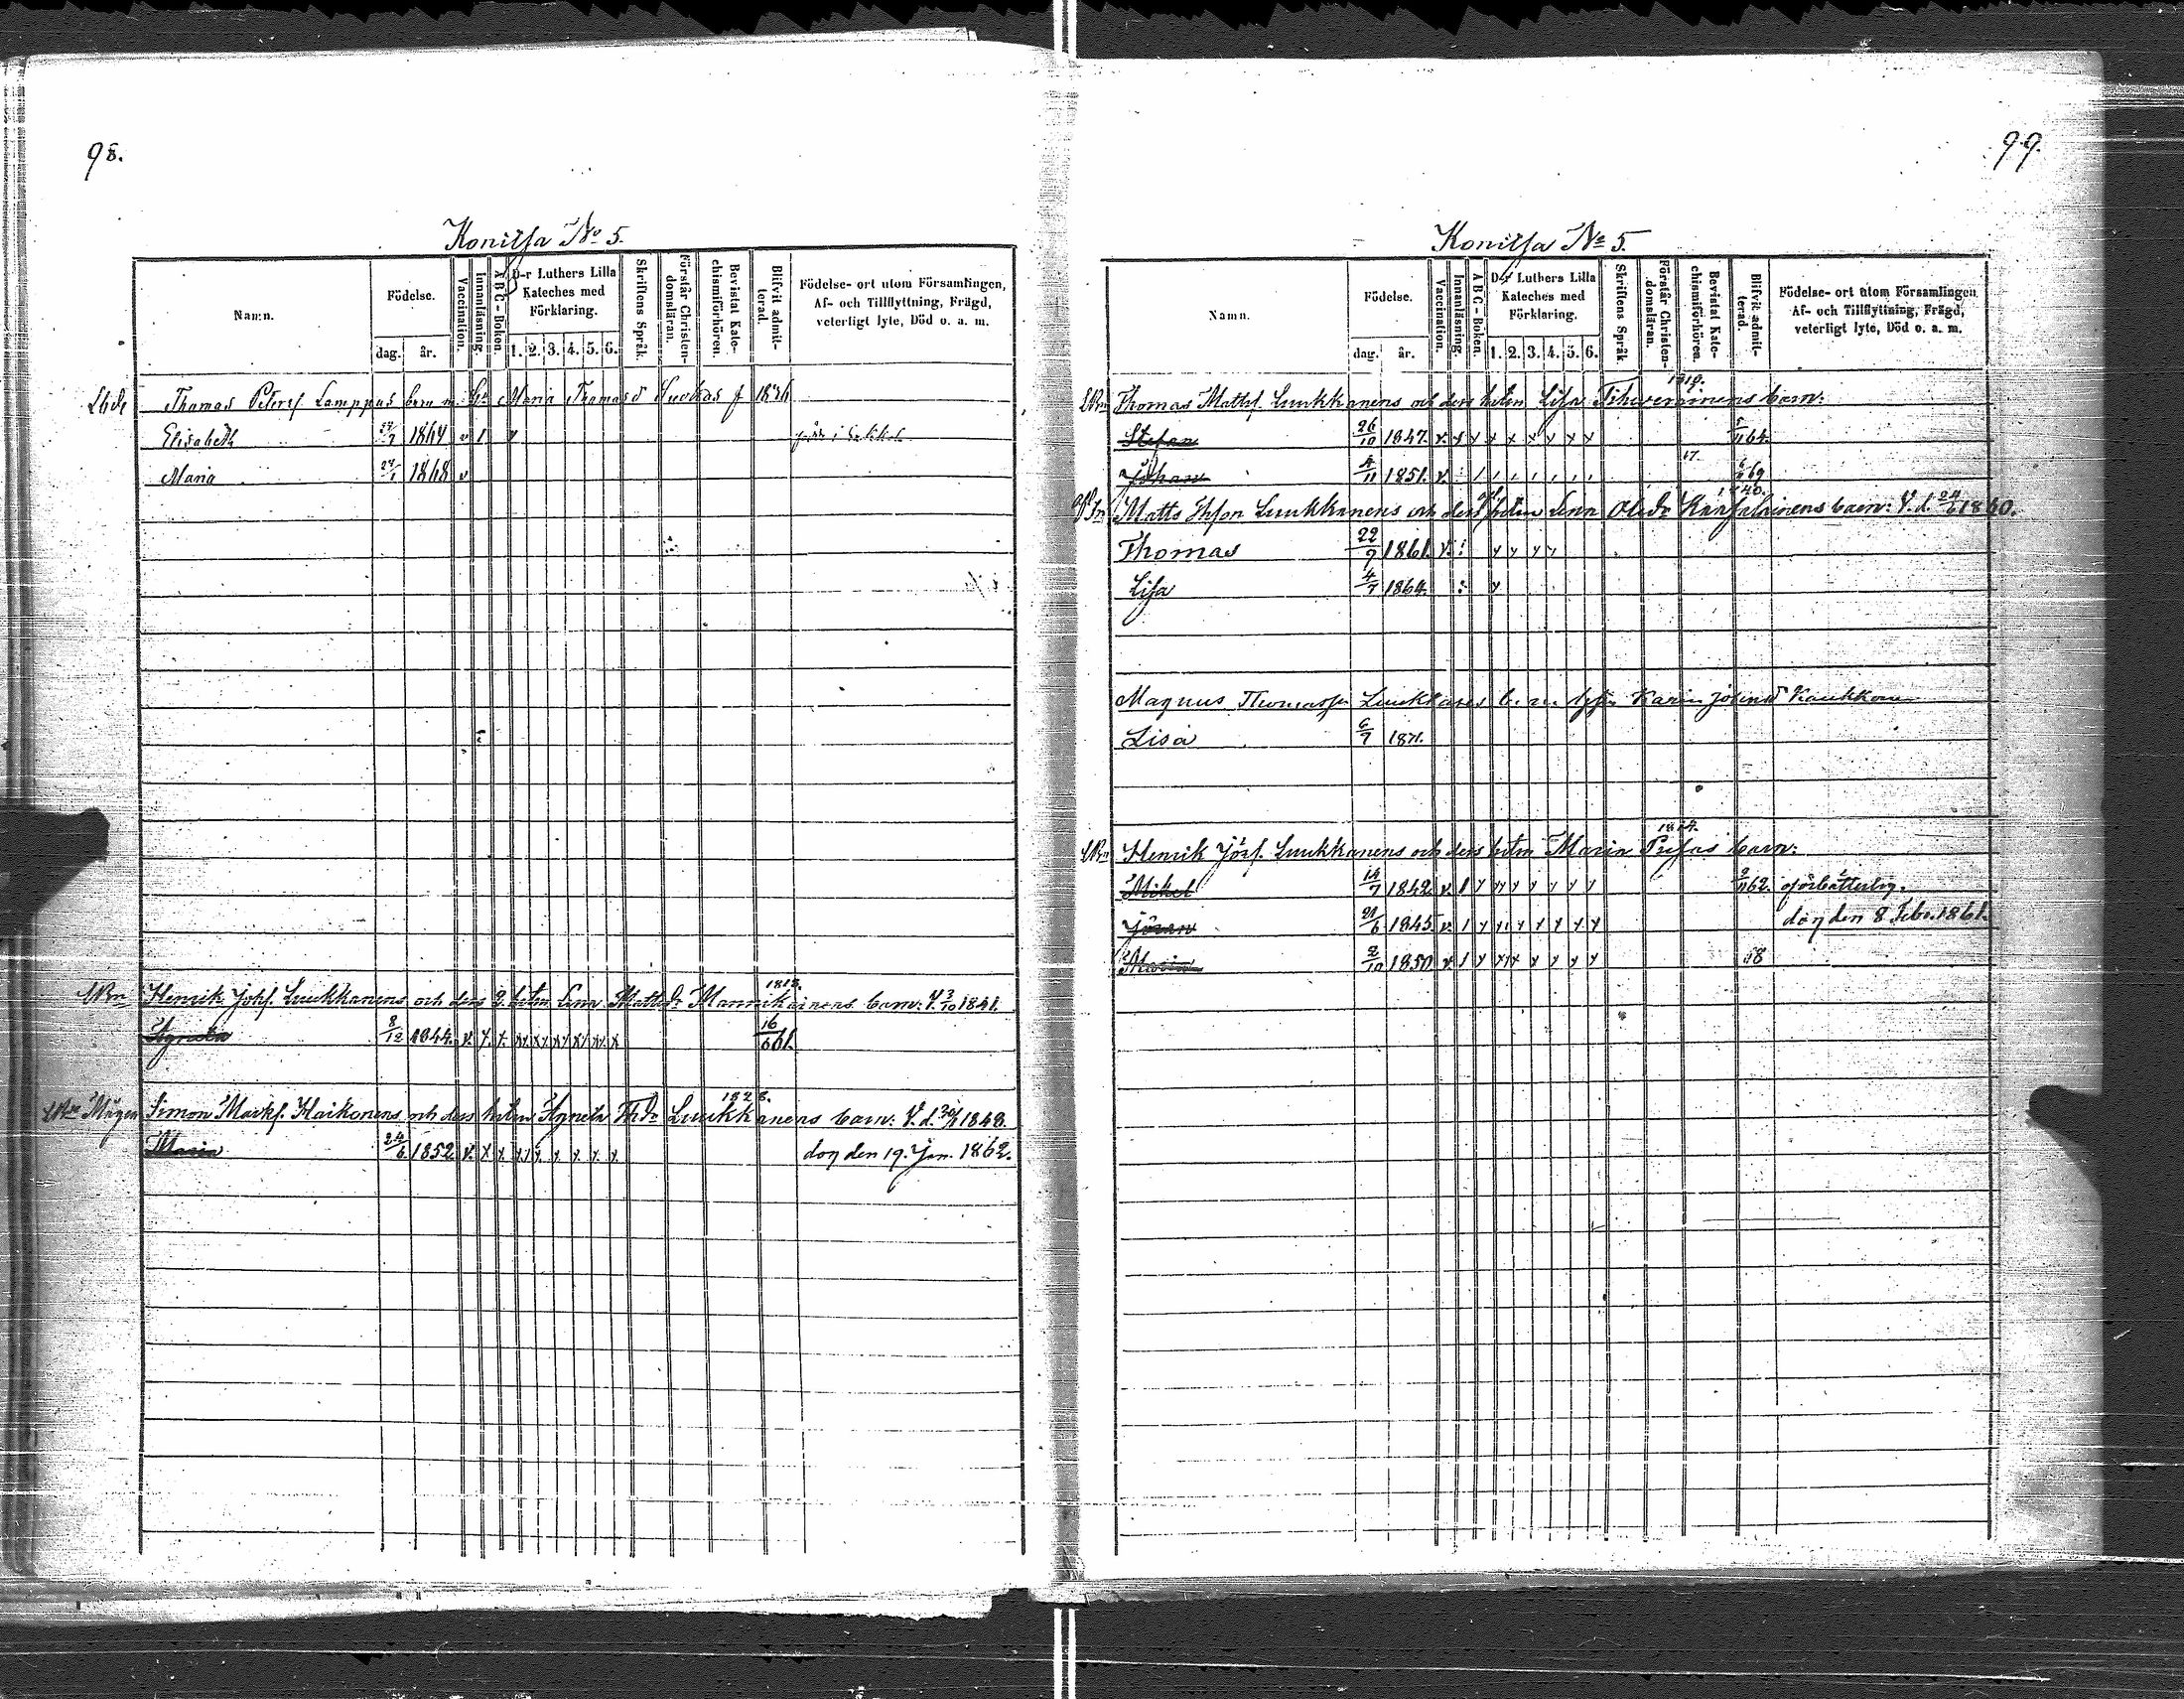 98.
Konitsa No 5.
Namn.
Födelse.
dag. år.
Vaccination.
Innanläsning.
A B C - Boken.
D-r Luthers Lilla
Kateches med
Förklaring.
1. 2. 3. 4. 5. 6.
Skriftens Språk.
Förstår Christen-
domsläran.
Bevistat Kate-
chismiförhören.
Blifvit admit-
terad.
Födelse- ort utom Församlingen,
Af- och Tillflyttning, Frägd,
veterligt lyte, Död o. a. m.
Thomas Petersf Lamppus barn m. Maria Thomasd f 1836
Elisabeth 1864 v 1 v
Maria 1868 v
1818.
Henrik Johsf. Luukkanens och dess 2. hstm Lena Mattsdr Mannikainens barn: V. 3/10 1841.
Agneta 8/12 1844. v. x x x x x x x x 16/6 61.
1828.
Simon Marksf. Haikonens och dess hstm Agneta Thdr Luukkanens barn: V. d. 1848.
Maria 24/6 1852 v. x x x x x x x x dog den 19. Jan. 1862.
99.
Konitsa No 5.
Namn.
Födelse.
dag. år.
Vaccination.
Innanläsning.
A B C - Boken.
D-r Luthers Lilla
Kateches med
Förklaring.
1. 2. 3. 4. 5. 6.
Skriftens Språk
Förstår Christen-
domsläran.
Bevistat Kate-
chismiförhören.
Blifvit admit-
terad.
Födelse- ort utom Församlingen
Af- och Tillflyttning, Frägd,
veterligt lyte, Död o. a. m.
1819.
Thomas Mattsf. Luukkanens och dess hstm Lisa Tihverainens barn:
Stefan 26/10 1847. v. x x x x x x x x 5/11 64.
17.
Johan 4/11 1851. v. 69
1840.
Matts Thsson Luukkanens och dess hstm Lena Olsdr Karsalainens barn: V. d. 24/6 1860.
Thomas 22/9 1861. v. x x x x
Lisa 4/7 1864. x
Magnus Thomasson Luukkanes b. m. Karin Johansd Kaukkonen
Lisa 6/7 1871.
1814.
Henrik Jörsf. Luukkanens och dess hstm Maria barn:
Mikel 14/7 1842 v. 1 x x x x x x x 2/11 62. oförbätterlig.
Jöran 21/6 1845 v. 1 x x x x x x x dog den 8 Febr. 1861.
Maria 2/10 1850 v. 1 x x x x x x x 68